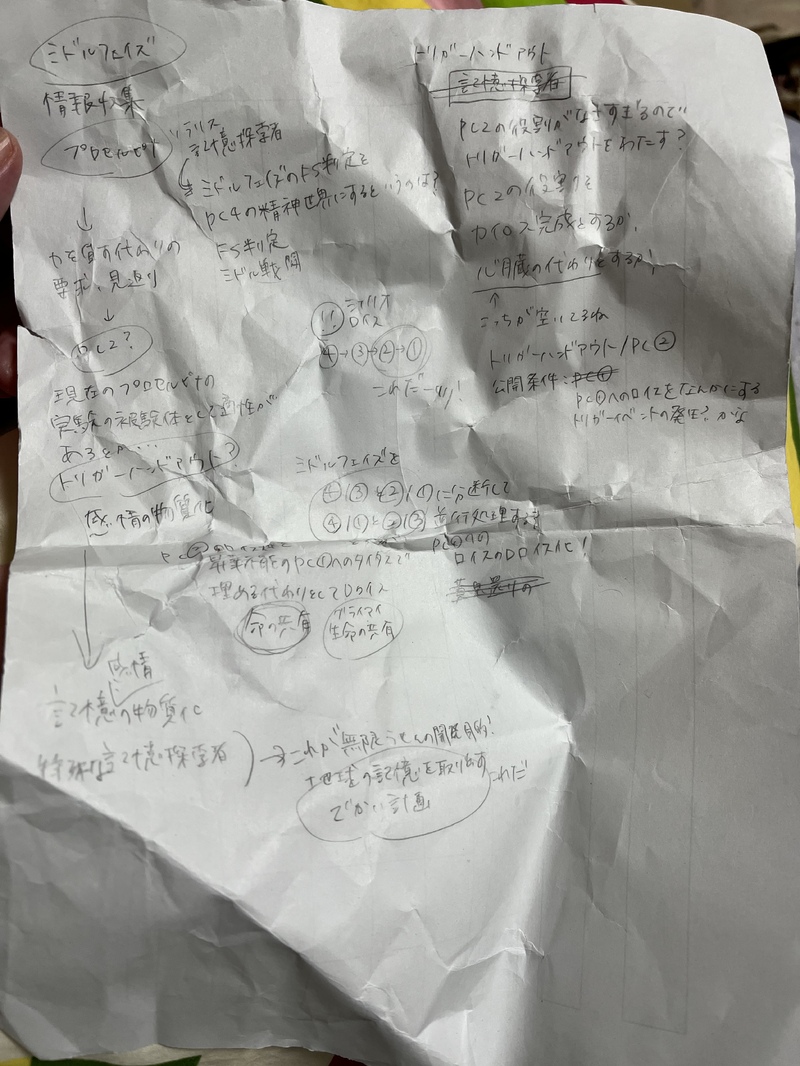 ミドルフェイズ
情報収集
プロセルピナ
ソラリス
記憶探索者
ミドルフェイズのFS判定を
PC4の精神世界にするというのは?
FS判定
ミドル戦闘
↓
力を貸す代わりの
要求、見返り
↓
PC2?
現在のプロセルピナの
実験の被験体として適性が
あるとか…
トリガーハンドアウト?
感情の物質化
感情
記憶の物質化
特殊な記憶探索者
→これが無限
の開発目的!
地球の記憶を取り出す
でかい計画
これだ
!!
ロイス
④→③→②→①
これだーッ!
ミドルフェイズを
④/③と②/①に分断して
④/①と②/③並行処理する
PC①への
ロイスのDロイス化!
PC①へのタイタスで
埋める代わりとしてDロイス
命の共有
生命の共有
トリガーハンドアウト
記憶探索者
PC2の役割がなさすぎるので
トリガーハンドアウトをわたす?
PC2の役割を
カイロス完成とするか、
心臓の代わりとするか!
↑
こっちが空いてるね
トリガーハンドアウト/PC②
公開条件:
PC①へのロイスをなんかにする
トリガーイベントの発生?かな